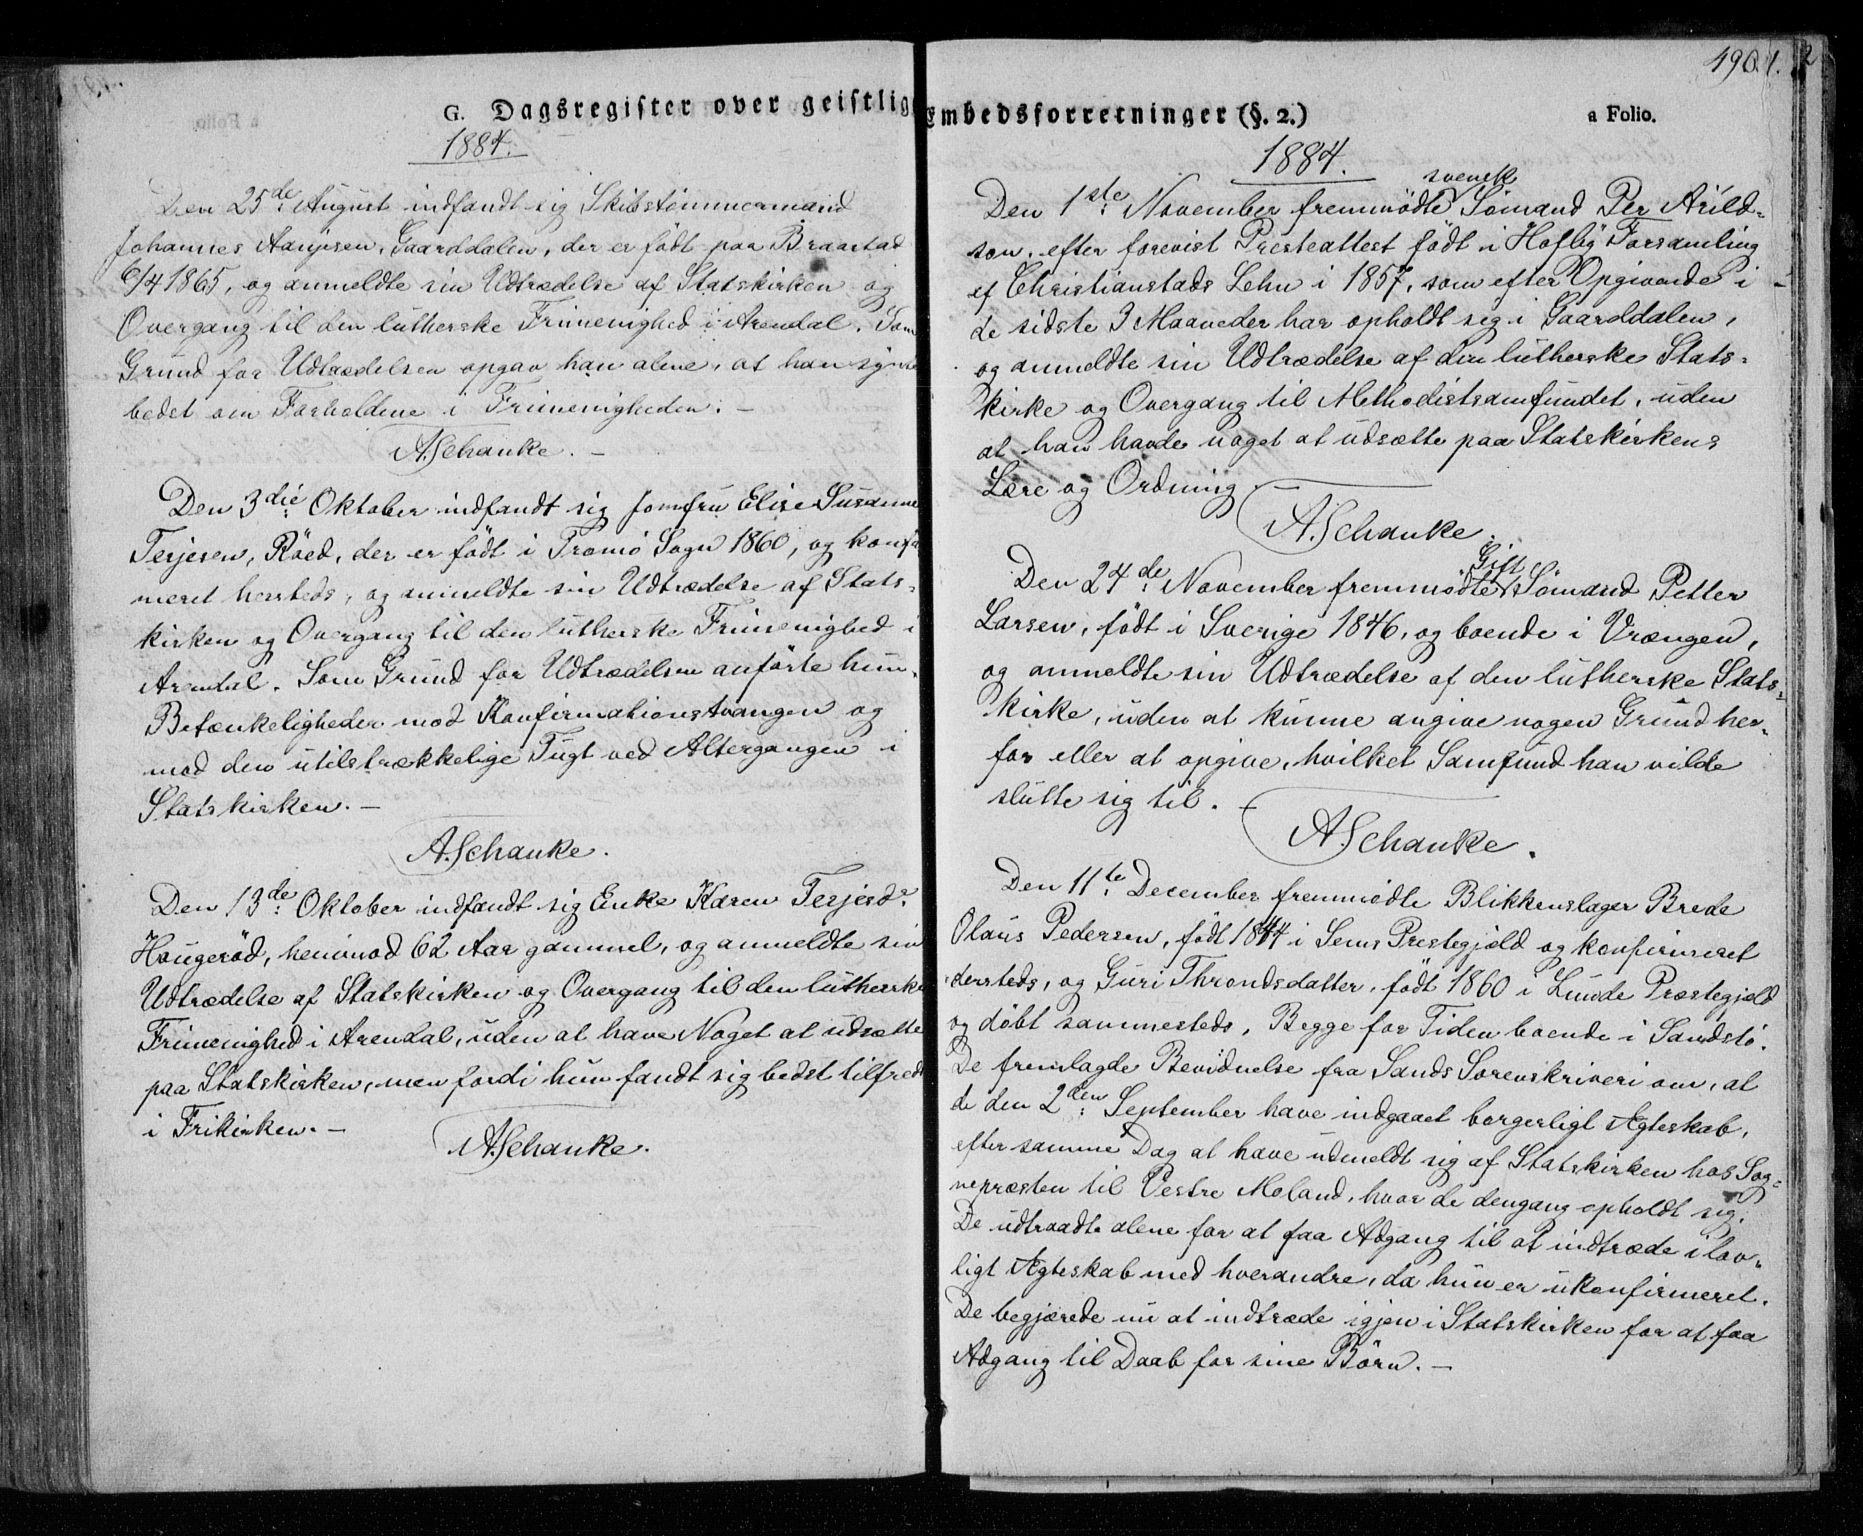 G. Dagsregister over geistlige Embedsforretninger (§. 2.)
a Folio.
1884.
Den 25de August indfandt sig Skibstømmermand
Johannes Aanjesen, Gaarddalen, der er født paa Braastad
6/4 1865, og anmeldte sin Udtrædelse af Statskirken og
Overgang til den lutherske Frimenighed i Arendal. Som
Grund for Udtrædelsen opgav han alene, at han syntes
bedst om Forholdene i Frimenigheden. —
A. Schanke. —
Den 3die Oktober indfandt sig Jomfru Elise Susanne
Terjesen, Röed, der er født i Tromö Sogn 1860, og konfir
meret hersteds, og anmeldte sin Udtrædelse af Stats-
kirken og Overgang til den lutherske Frimenighed i
Arendal. Som Grund for Udtrædelsen anförte hun
Betænkeligheder mod Konfirmationstvangen og
mod den utilstrækkelige Tugt ved Altergangen i
Statskirken. —
A. Schanke.
Den 13de Oktober indfandt sig Enke Karen Terjesdr
Hougeröd, henimod 62 Aar gammel, og anmeldte sin
Udtrædelse af Statskirken og Overgang til den lutherske
Frimenighed i Arendal, uden at have Noget at udsætte
paa Statskirken, men fordi hun fandt sig bedst tilfreds
i Frikirken. —
A. Schanke.
1884.
svensk
Den 1ste November fremmödte Sömand Per Arild-
son, efter forevist Presteattest født i Hofby Forsamling
af Christianstads Lehn i 1857, som efter Opgivende i
de sidste 3 Maaneder har opholdt sig i Gaarddalen,
og anmeldte sin Udtrædelse af den lutherske Stats-
kirke og Overgang til Methodistsamfundet, uden
at han havde noget at udsætte paa Statskirkens
Lære og Ordning. —
A. Schanke.
Gift
Den 24de November fremmödte Sömand Petter
Larsen, födt i Sverige 1846, og boende i Vrængen,
og anmeldte sin Udtrædelse af den lutherske Stats-
kirke, uden at kunne angive nogen Grund her-
for eller at opgive, hvilket Samfund han vilde
slutte sig til. —
A. Schanke.
Den 11te December fremmödte Blikkenslager Brede
Olaus Pedersen, födt 1844 i Sems Prestegjeld og konfirmeret
dersteds, og Guri Throndsdatter, födt 1860 i Lunde Præstegjeld
og döbt sammesteds, Begge for Tiden boende i Sandstö.
De fremlagde Bevidnelse fra Sands Sorenskriveri om, at
de den 2den September have indgaaet borgerligt Ægteskab,
efter samme Dag at have udmeldt sig af Statskirken hos Sog-
nepræsten til Vestre Moland, hvor de dengang opholdt sig.
De udtraadte alene for at faa Adgang til at indtræde i lov-
ligt Ægteskab med hverandre, da hun er ukonfirmeret.
De begjærede nu at indtræde igjen i Statskirken for at faa
Adgang til Daab for sine Börn. —